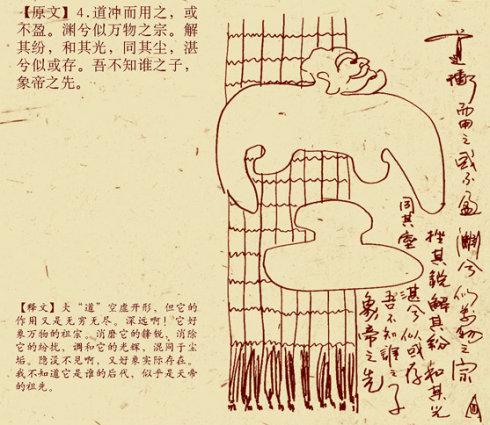 【原文】4.道冲而用之，或
不盈。渊兮似万物之宗。解
其纷，和其光，同其尘，湛
兮似或存。吾不知谁之子，
象帝之先。
【释文】大“道”空虚开形，但它的
作用又是无穷无尽。深远啊！它好
象万物的祖宗。消磨它的锋锐，消除
它的纷扰，调和它的光辉，混同于尘
垢。隐没不见啊，又好象实际存在。
我不知道它是谁的后代，似乎是天帝
的祖先。
道衝而用之或不盈渊兮似萬物之宗
挫其銳解其紛和其光
同其塵
湛兮似或存
吾不知誰之子
象帝之先